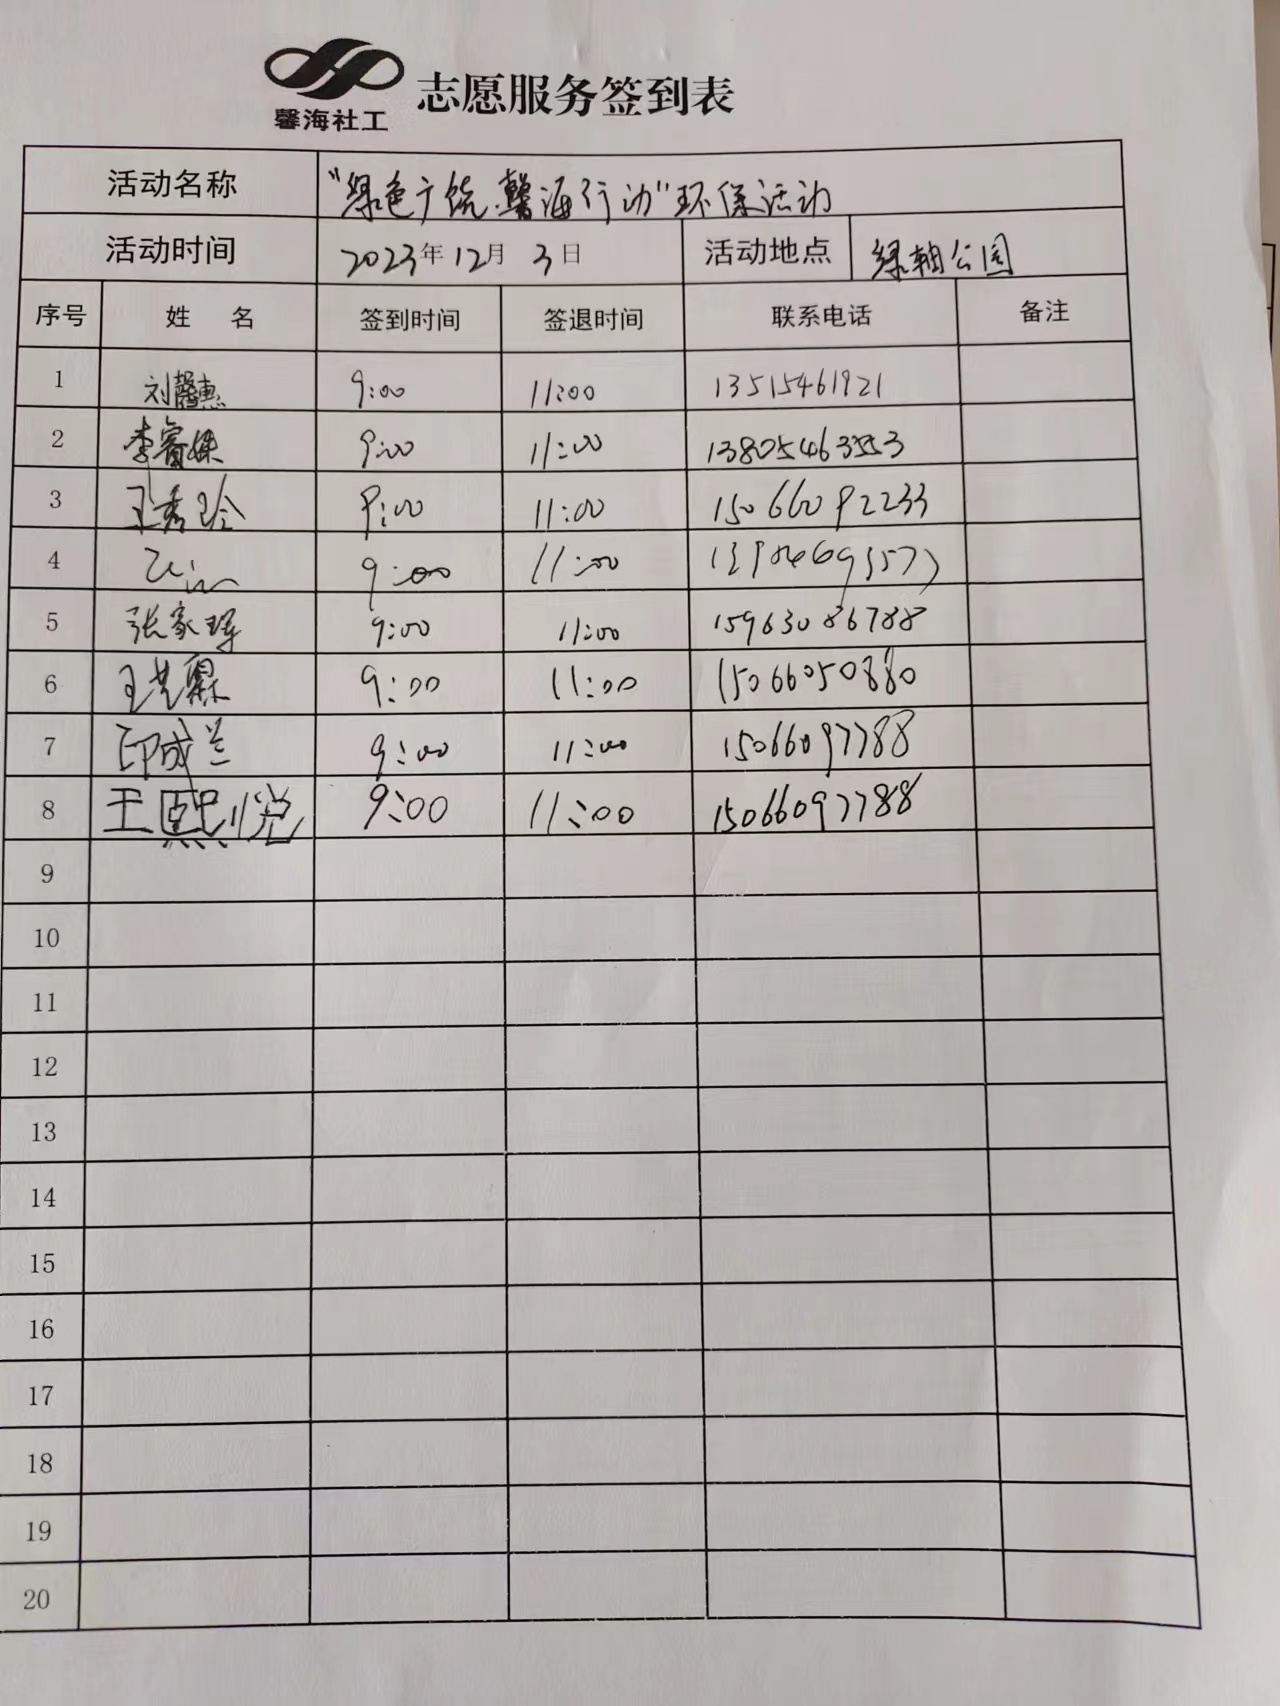 馨海社工 志愿服务签到表
活动名称 "绿色广饶·馨海行动"环保活动
活动时间 2023年12月3日 活动地点 绿轴公园
序号 姓 名 签到时间 签退时间 联系电话 备注
1 刘馨惠 9:00 11:00 13515461921
2 李睿 9:00 11:00 13805463553
3 王秀玲 9:00 11:00 15066092233
4 9:00 11:00
5 张家 9:00 11:00 15963086788
6 王艺霖 9:00 11:00 15066050880
7 印成兰 9:00 11:00 15066097788
8 王熙悦 9:00 11:00 15066097788
9
10
11
12
13
14
15
16
17
18
19
20